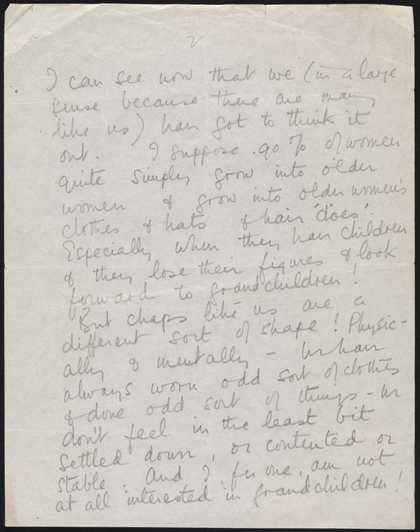 2
I can see now that we (in a large
sense because there are many
like us) have got to think it
out. I suppose 90% of women
quite simply grow into older
women & grow into older women's
clothes & hats & hair 'does'.
Especially when they have children
& they lose their figures & look
forward to grandchildren!
But chaps like us are a
different sort of shape! Physic-
ally & mentally - We have
always worn odd sort of clothes
& done odd sort of things - We
don't feel in the least bit
settled down, or contented or
stable. And I for one, am not
at all interested in grandchildren!